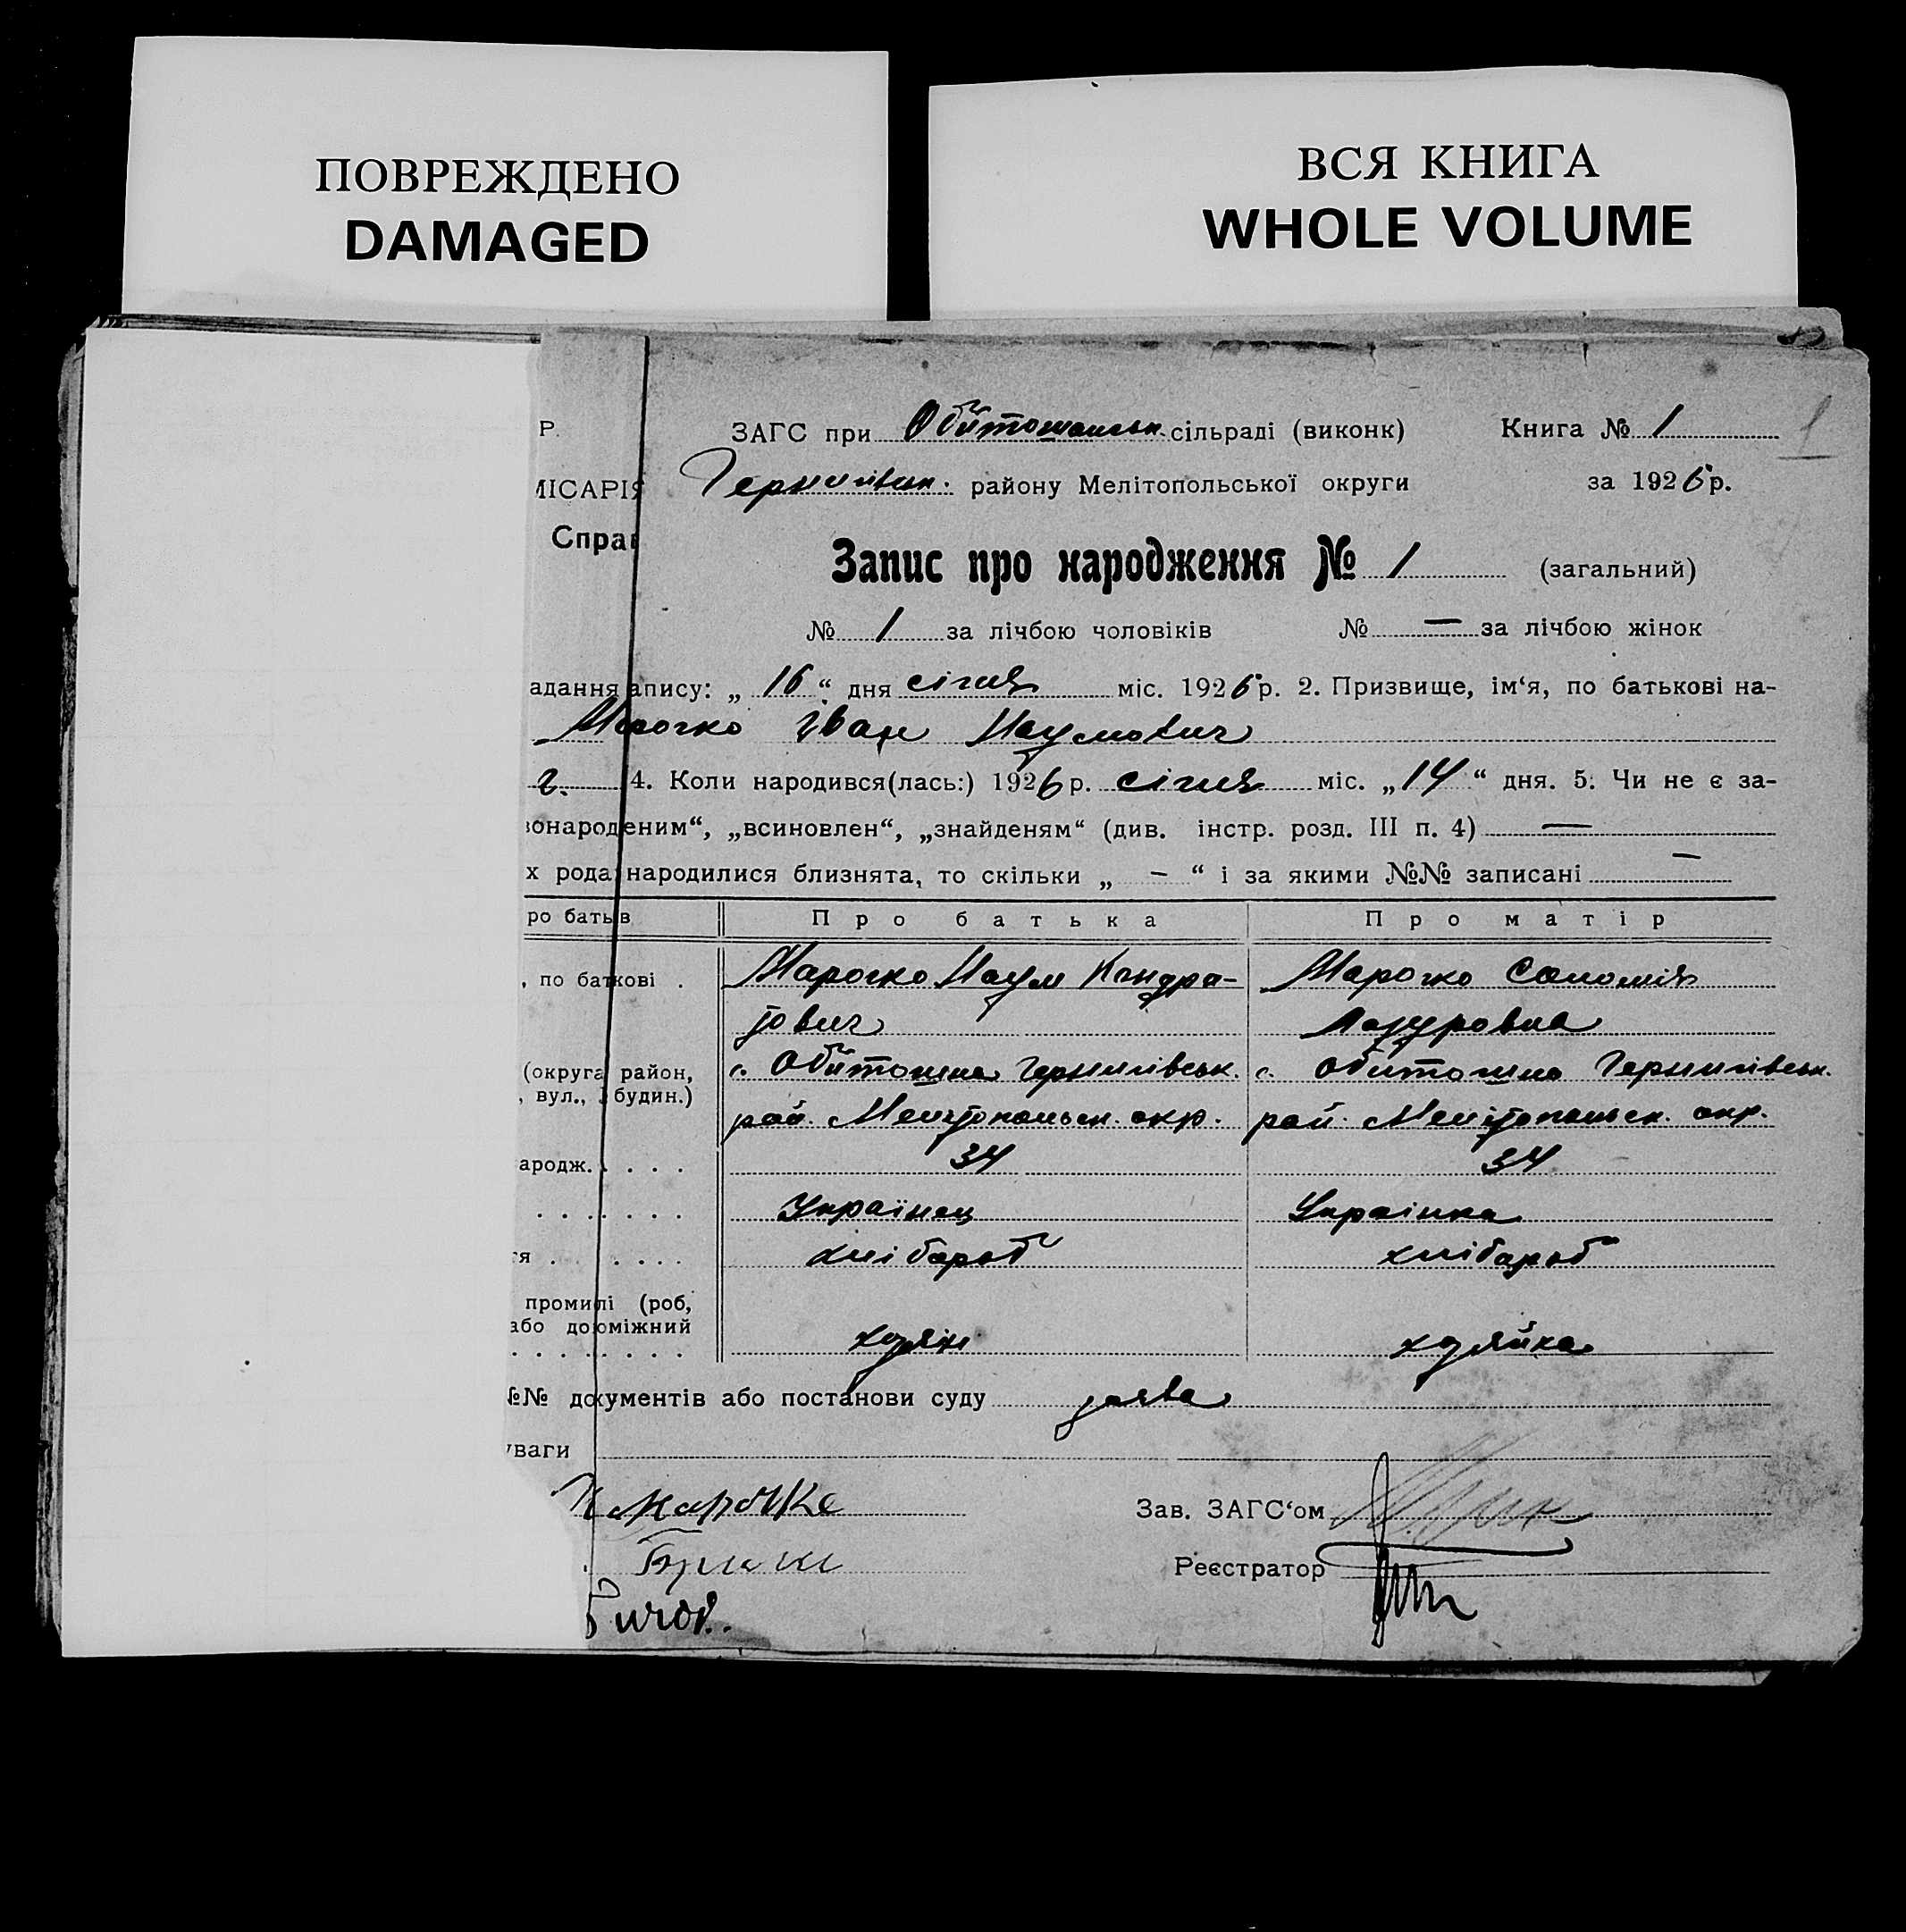 ПОВРЕЖДЕНО
DAMAGED
ВСЯ КНИГА
WHOLE VOLUME
Р. ЗАГС при сільраді (виконк) Книга № 1
1
МІСАРІЯ Чернигівськ. району Мелітопольської округи за 1926 р.
Справ
Запис про народження № 1 (загальний)
№ 1 за лічбою чоловіків № — за лічбою жінок
адання апису: „ 16 “ дня січня міс. 1926 р. 2. Призвище, ім‘я, по батькові на-
Марочко Іван Наумович
ч. 4. Коли народився(лась:) 1926 р. січня міс. „ 14 “ дня. 5. Чи не є за-
онароденим“, „всиновлен“, „знайденям“ (див. інстр. розд. III п. 4) —
х рода народилися близнята, то скільки „ — “ і за якими №№ записані —
ро батьв Про батька Про матір
, по баткові . Марочко Наум Кандра- Марочко Саломія
тович Лазуровна
(округа район, с. Обіточна Чернигівськ. с. Обиточна Чернигівськ.
, вул., будин.) рай. Мелітопольск. окр. рай. Мелітопольск. окр.
ародж. . . . . 34 34
. . . . . . . Українец Українка
тя . . . . . хлібороб хлібороб
промислі (роб,
або допоміжний хозяїн хозяйка
№№ документів або постанови суду заява
уваги
Н Марочко Зав. ЗАГС‘ом
Реєстратор